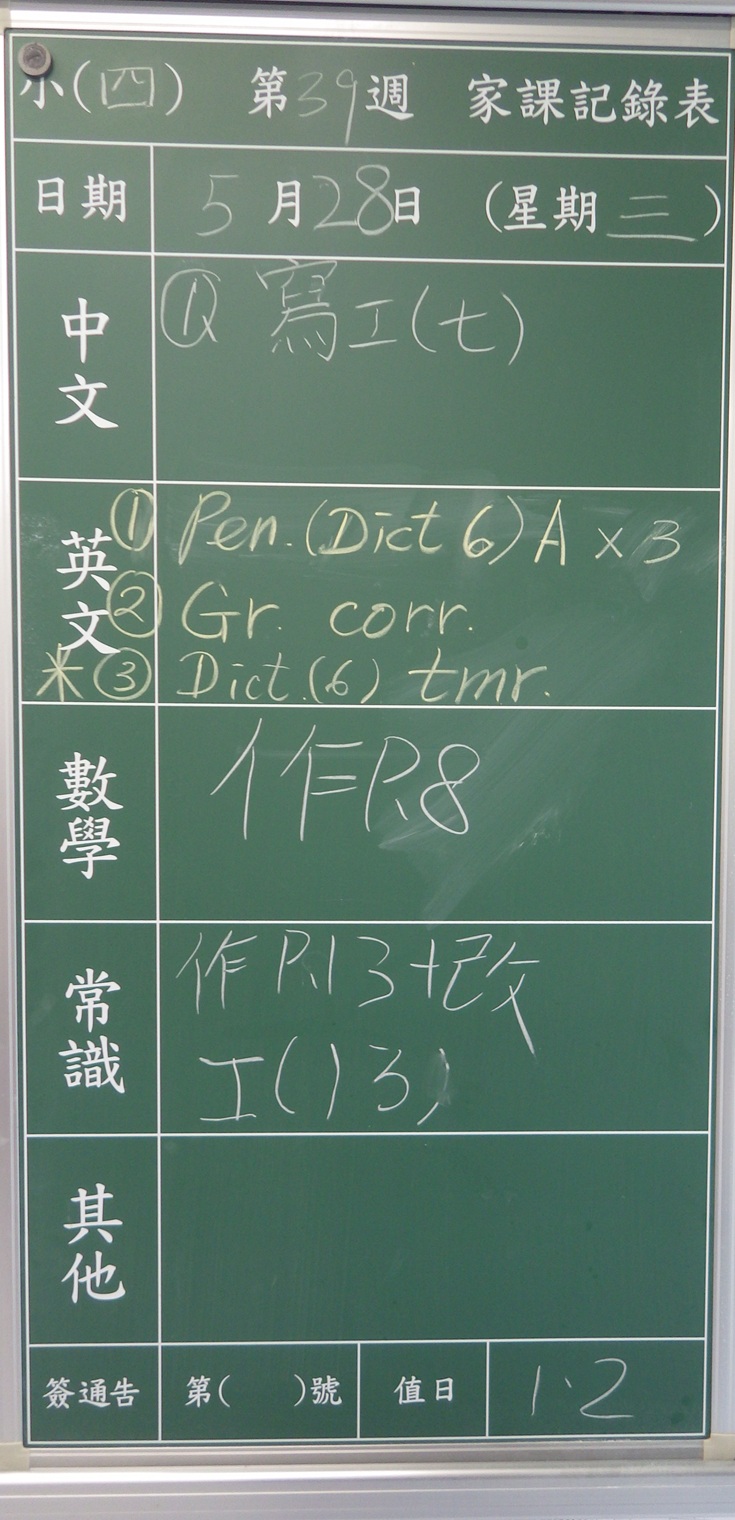 小(四) 第39週 家課記錄表
日期 5月28日 (星期三)
中文 ① 寫工(七)
英文 ① Pen. (Dict 6) A × 3
② Gr. corr.
*③ Dict. (6) tmr.
數學 作P.8
常識 作P.13+改
工(13)
其他
簽通告 第( )號 值日 1.2